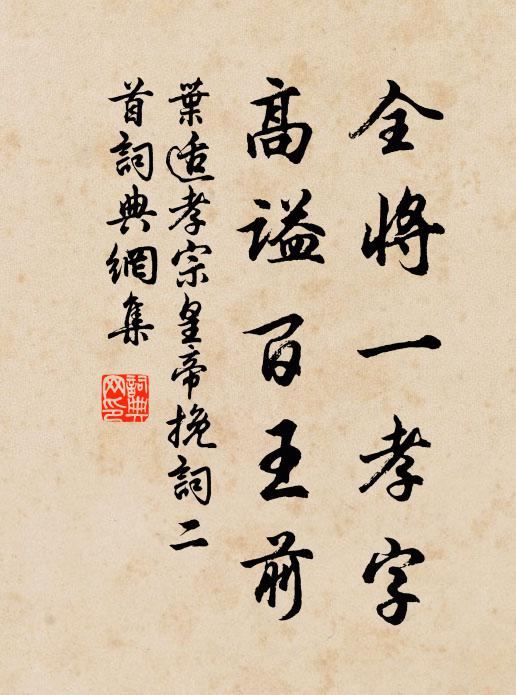 全將一孝字
高謚百王前
葉适孝宗皇帝挽詞二
首詞典網集
詞典
网印